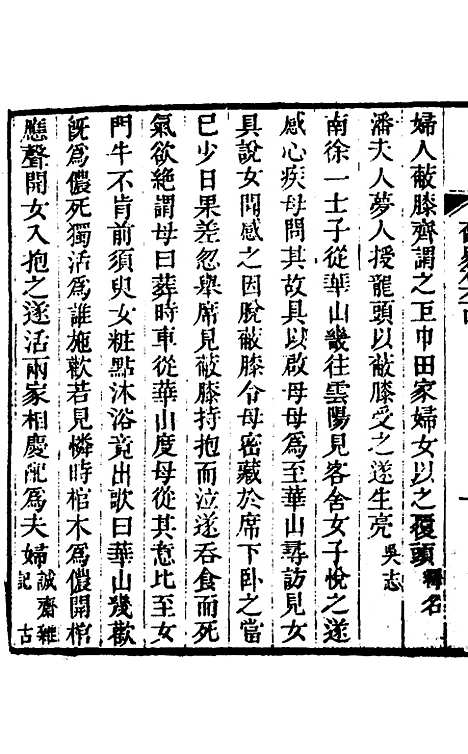 婦人蔽膝齊謂之巨巾田家婦女以之覆頭釋名
潘夫人夢人授龍頭以蔽膝受之遂生亮吳志
南徐一士子從華山畿往雲陽見客舍女子悅之遂
感心疾母問其故具以啟母母為至華山尋訪見女
具說女聞感之因脫蔽膝令母密藏於席下臥之當
已少日果差忽舉席見蔽膝持抱而泣遂吞食而死
氣欲絕謂母曰葬時車從華山度母從其意比至女
門牛不肯前須臾女粧點沐浴竟出歌曰華山畿歡
既為儂死獨活為誰施歡若見憐時棺木為儂開棺
應聲開女入抱之遂活兩家相慶配為夫婦誠齋雜記 古